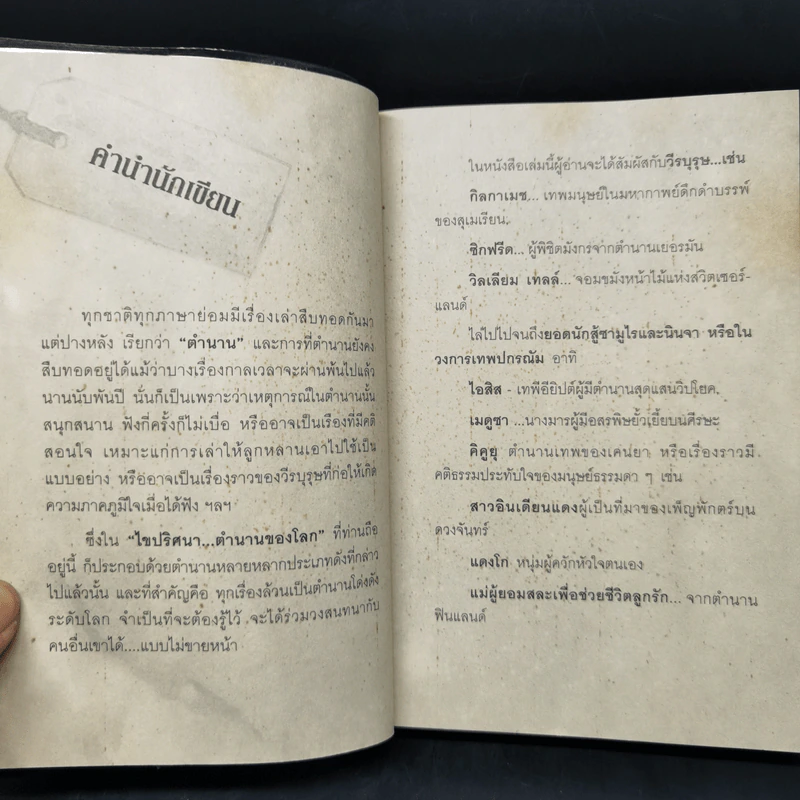 คำนำนักเขียน
ทุกชาติทุกภาษาย่อมมีเรื่องเล่าสืบทอดกันมา
แต่ปางหลัง เรียกว่า “ตำนาน” และการที่ตำนานยังคง
สืบทอดอยู่ได้แม้ว่าบางเรื่องกาลเวลาจะผ่านพ้นไปแล้ว
นานนับพันปี นั่นก็เป็นเพราะว่าเหตุการณ์ในตำนานนั้น
สนุกสนาน ฟังกี่ครั้งก็ไม่เบื่อ หรืออาจเป็นเรื่องที่มีคติ
สอนใจ เหมาะแก่การเล่าให้ลูกหลานเอาไปใช้เป็น
แบบอย่าง หรืออาจเป็นเรื่องราวของวีรบุรุษที่ก่อให้เกิด
ความภาคภูมิใจเมื่อได้ฟัง ฯลฯ
ซึ่งใน “ไขปริศนา...ตำนานของโลก” ที่ท่านถือ
อยู่นี้ ก็ประกอบด้วยตำนานหลายหลากประเภทดังที่กล่าว
ไปแล้วนั้น และที่สำคัญคือ ทุกเรื่องล้วนเป็นตำนานโด่งดัง
ระดับโลก จำเป็นที่จะต้องรู้ไว้ จะได้ร่วมวงสนทนากับ
คนอื่นเขาได้....แบบไม่ขายหน้า
ในหนังสือเล่มนี้ผู้อ่านจะได้สัมผัสกับวีรบุรุษ...เช่น
กิลกาเมช... เทพมนุษย์ในมหากาพย์ดึกดำบรรพ์
ของสุเมเรียน,
ซิกฟรีด... ผู้พิชิตมังกรจากตำนานเยอรมัน
วิลเลียม เทลล์... จอมขมังหน้าไม้แห่งสวิตเซอร์-
แลนด์
ไล่ไปไปจนถึงยอดนักสู้ซามูไรและนินจา หรือใน
วงการเทพปกรณัม อาทิ
ไอสิส - เทพีอียิปต์ผู้มีตำนานสุดแสนวิปโยค,
เมดูซา ...นางมารผู้มีอสรพิษยั้วเยี้ยบนศีรษะ
คิคูยุ ตำนานเทพของเคนยา หรือเรื่องราวมี
คติธรรมประทับใจของมนุษย์ธรรมดา ๆ เช่น
สาวอินเดียนแดงผู้เป็นที่มาของเพ็ญพักตร์บน
ดวงจันทร์
แดงโก หนุ่มผู้ควักหัวใจตนเอง
แม่ผู้ยอมสละเพื่อช่วยชีวิตลูกรัก... จากตำนาน
ฟินแลนด์